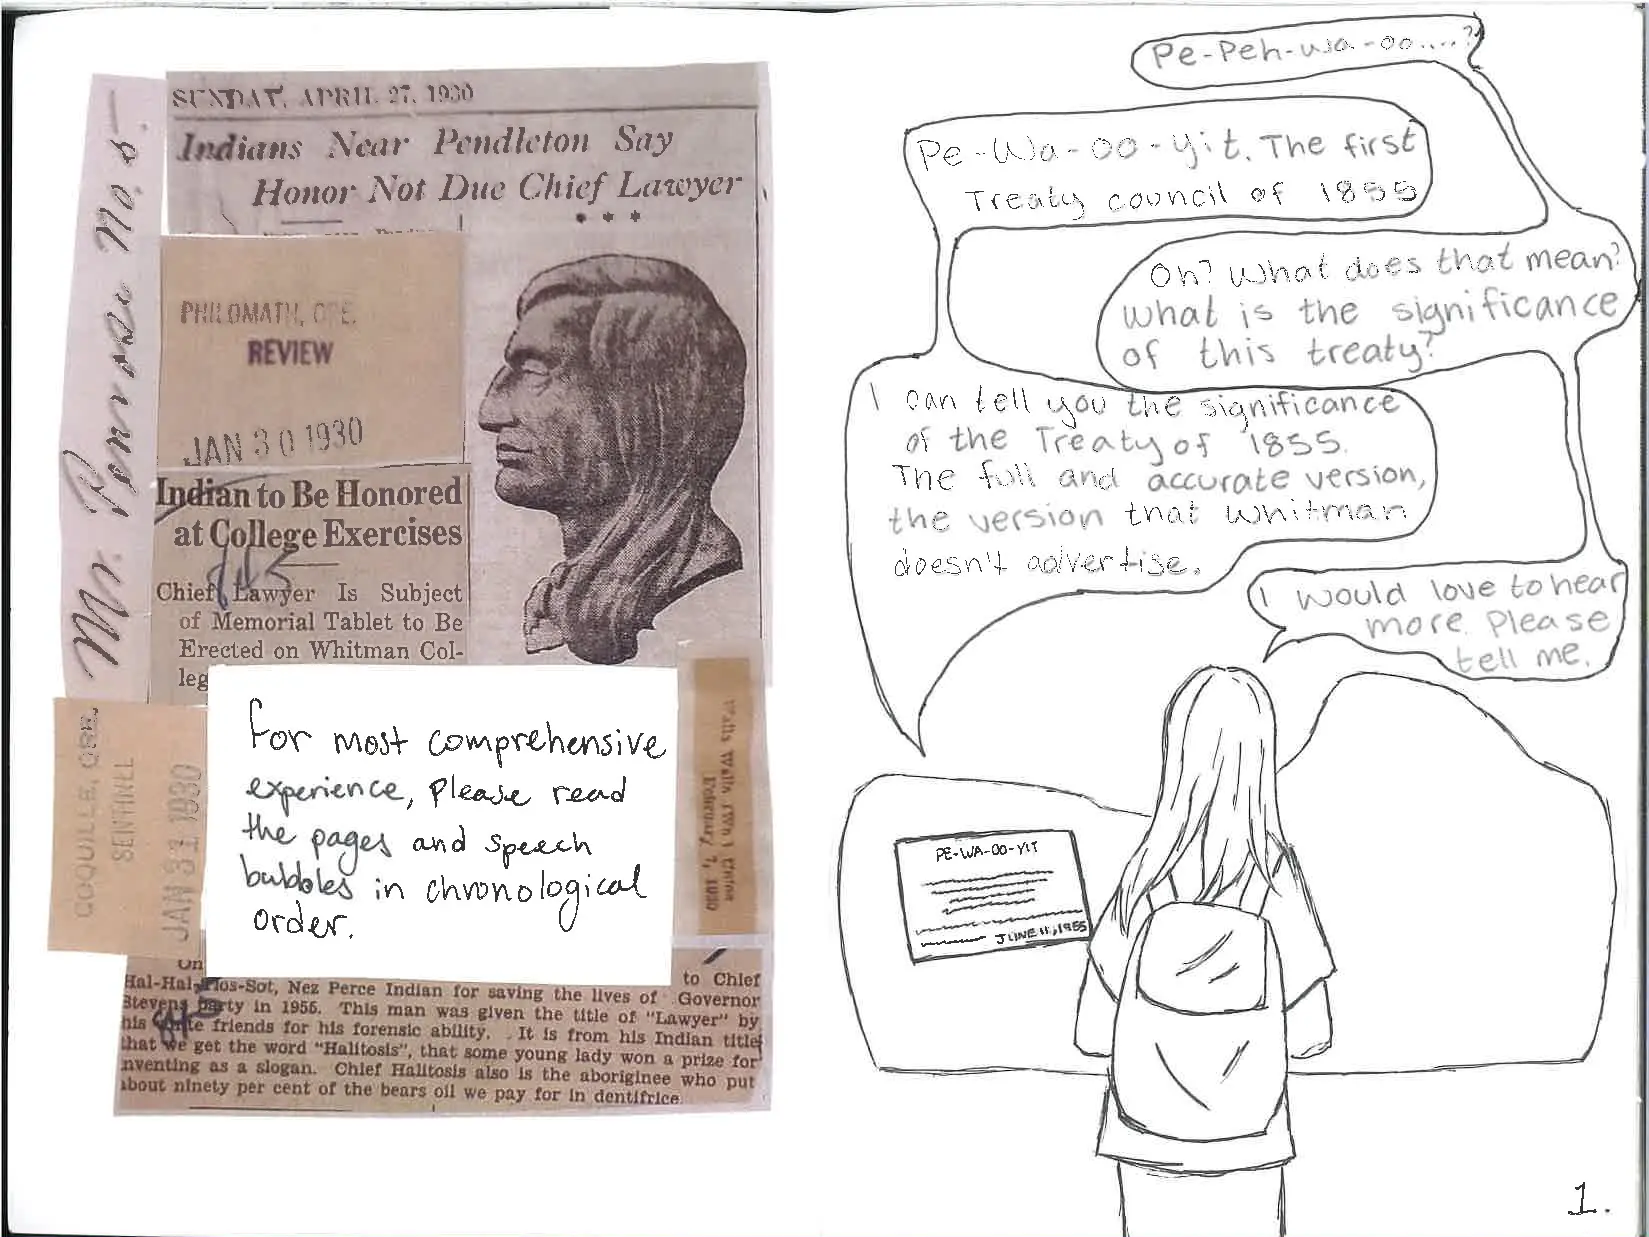 SUNDAY, APRIL 27, 1930
Indians Near Pendleton Say
Honor Not Due Chief Lawyer
* * *
Mr. Penrose No. 6
PHILOMATH, ORE.
REVIEW
JAN 30 1930
Indian to Be Honored
at College Exercises
Chief Lawyer Is Subject
of Memorial Tablet to Be
Erected on Whitman Col-
leg
COQUILLE, ORE.
SENTINEL
JAN 31 1930
For most comprehensive
experience, please read
the pages and speech
bubbles in chronological
order.
Walla Walla (Wn.) Union
February 7, 1930
On
to Chief
Hal-Hal-Tlos-Sot, Nez Perce Indian for saving the lives of Governor
Stevens party in 1955. This man was given the title of "Lawyer" by
his white friends for his forensic ability. It is from his Indian title
that we get the word "Halitosis", that some young lady won a prize for
nventing as a slogan. Chief Halitosis also is the aboriginee who put
about ninety per cent of the bears oil we pay for in dentifrice.
Pe-Peh-wa-oo....?
Pe-Wa-oo-yit. The first
Treaty council of 1855
Oh? What does that mean?
what is the significance
of this treaty?
I can tell you the significance
of the Treaty of 1855.
The full and accurate version,
the version that Whitman
doesn't advertise.
I would love to hear
more. Please
tell me.
PE-WA-OO-YIT
JUNE 11, 1955
1.